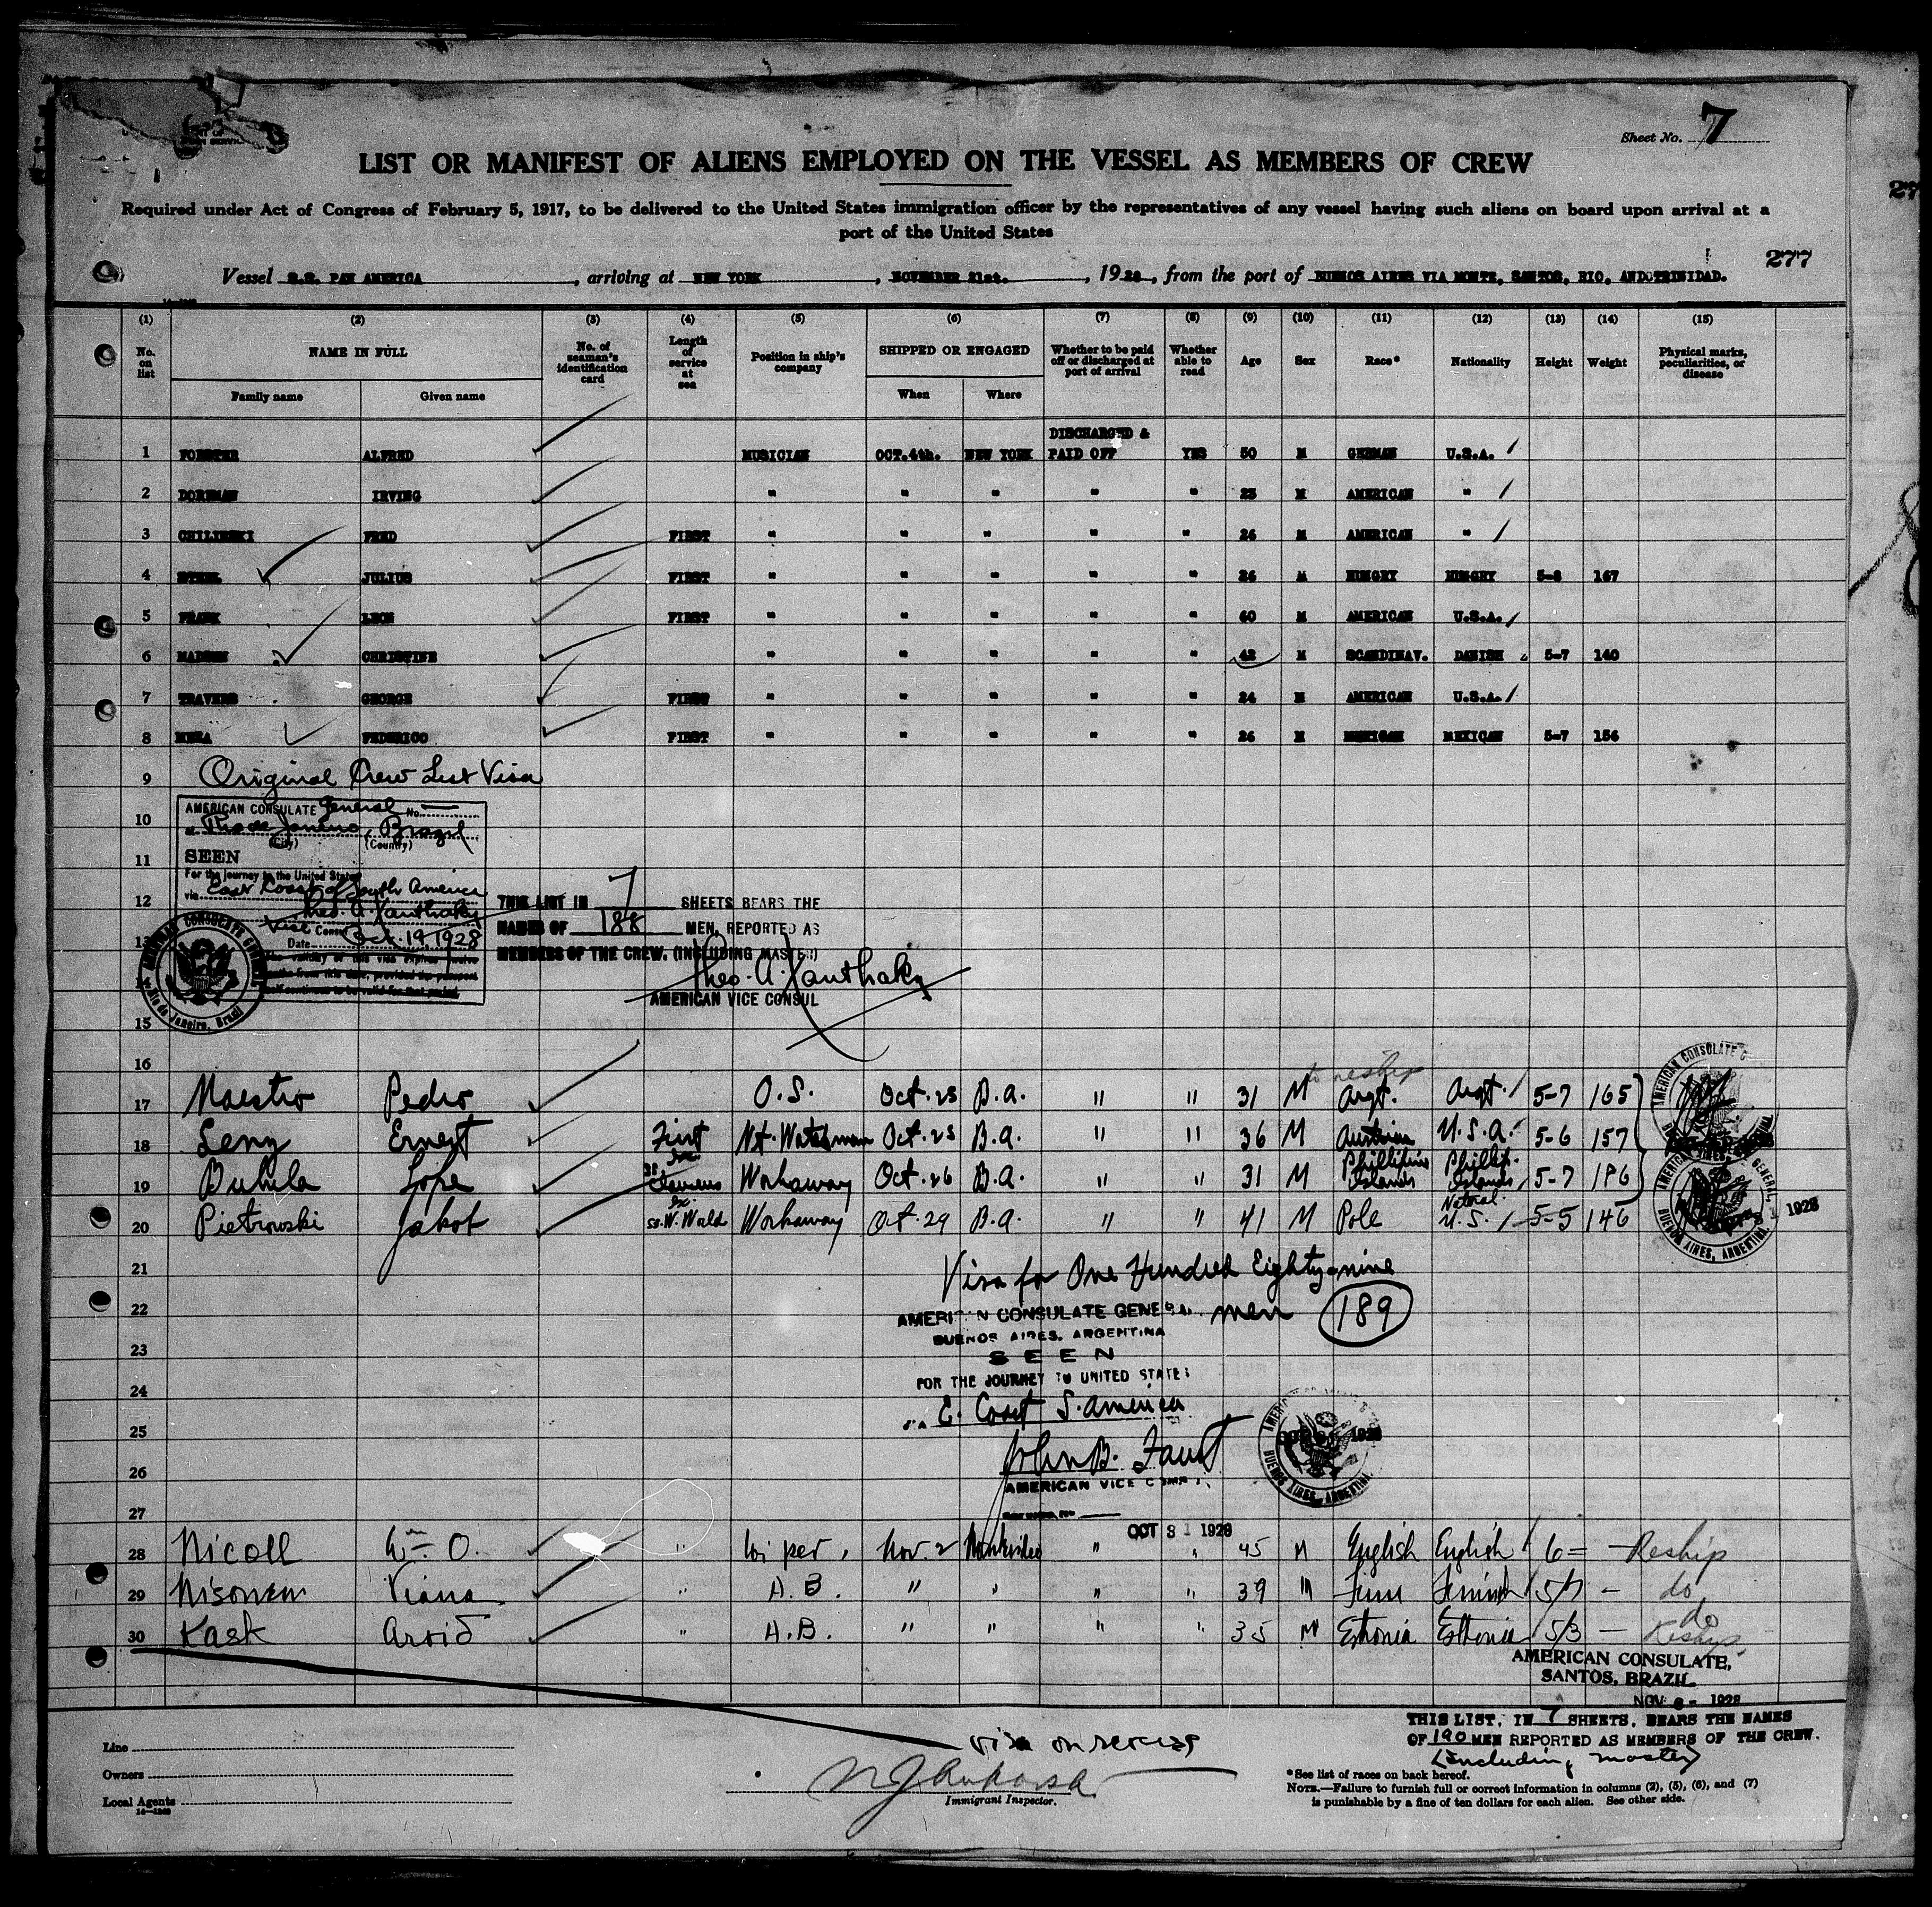 Sheet No. 7
LIST OR MANIFEST OF ALIENS EMPLOYED ON THE VESSEL AS MEMBERS OF CREW
Required under Act of Congress of February 5, 1917, to be delivered to the United States immigration officer by the representatives of any vessel having such aliens on board upon arrival at a
port of the United States
277
Vessel S.S. PAN AMERICA, arriving at NEW YORK, NOVEMBER 21st., 1928, from the port of BUENOS AIRES VIA MONTE, SANTOS, RIO, AND TRINIDAD.
(1) (2) (3) (4) (5) (6) (7) (8) (9) (10) (11) (12) (13) (14) (15)
No. on list NAME IN FULL No. of seaman's identification card Length of service at sea Position in ship's company SHIPPED OR ENGAGED Whether to be paid off or discharged at port of arrival Whether able to read Age Sex Race* Nationality Height Weight Physical marks, peculiarities, or disease
Family name Given name When Where
DISCHARGED &
1 FORSTER ALFRED MUSICIAN OCT.4th. NEW YORK PAID OFF YES 50 M GERMAN U.S.A. /
2 DORFMAN IRVING " " " " " 23 M AMERICAN " /
3 FRED FIRST " " " " " 26 M AMERICAN " /
4 JULIUS FIRST " " " " " 26 M HUNGRY HUNGRY 5-8 167
5 FRANK LEON FIRST " " " " " 60 M AMERICAN U.S.A. /
6 MADSEN CHRISTINE " " " " " 42 M SCANDINAV. DANISH 5-7 140
7 TRAVERS GEORGE FIRST " " " " " 24 M AMERICAN U.S.A. /
8 MEZA FEDERICO FIRST " " " " " 26 M MEXICAN MEXICAN 5-7 156
9 Original Crew List Visa
AMERICAN CONSULATE General No.
10 Rio de Janeiro, Brazil
(City) (Country)
11 SEEN
For the journey to the United States
via East Coast of South America
12 Theo. A. Xanthaky
THIS LIST IN 7 SHEETS BEARS THE
Vice Consul
NAMES OF 188 MEN, REPORTED AS
13 Date Oct. 19, 1928
MEMBERS OF THE CREW. (INCLUDING MASTER)
AMERICAN CONSULATE GENERAL
Rio de Janeiro, Brazil
Theo. A. Xanthaky
14 AMERICAN VICE CONSUL
15
16 to reship
17 Maestro Pedro O.S. Oct. 23 B.A. " " 31 M Argt. Argt. / 5-7 165
18 Leny Ernest First Nt. Watchman Oct. 23 B.A. " " 36 M Austrian U.S.A. 5-6 157
19 Lope Workaway Oct. 26 B.A. " " 31 M Phillipine Islands Phillip. Islands 5-7 186
20 Pietrowski Jakob ex. SS. W. World Workaway Oct. 29 B.A. " " 41 M Pole Natural. U.S. / 5-5 146
AMERICAN CONSULATE GENERAL, BUENOS AIRES, ARGENTINA. 1928
21 Visa for One Hundred Eighty-nine
22 men 189
AMERICAN CONSULATE GENERAL
BUENOS AIRES, ARGENTINA
23 SEEN
FOR THE JOURNEY TO UNITED STATES
24
E. Coast S. America
25 John B. Faust
BUENOS AIRES, ARGENTINA 1928
26 AMERICAN VICE CONSUL
27
OCT 31 1928
28 Nicoll Wm O. " Wiper, Nov. 2 Montevideo " " 45 M English English / 6= - Reship
29 Nisonen " A.B. " " " " 39 M Finn Finnish / 5/7 - do
do
30 Kask Arvid " A.B. " " " " 35 M Esthonia Esthonia / 5/3 - Reship
AMERICAN CONSULATE,
SANTOS, BRAZIL.
NOV 1928
THIS LIST, IN 7 SHEETS, BEARS THE NAMES
OF 190 MEN REPORTED AS MEMBERS OF THE CREW.
(Including master)
Line
Owners
Local Agents
14-1240
visa on reverse
Immigrant Inspector.
*See list of races on back hereof.
NOTE.—Failure to furnish full or correct information in columns (2), (5), (6), and (7)
is punishable by a fine of ten dollars for each alien. See other side.